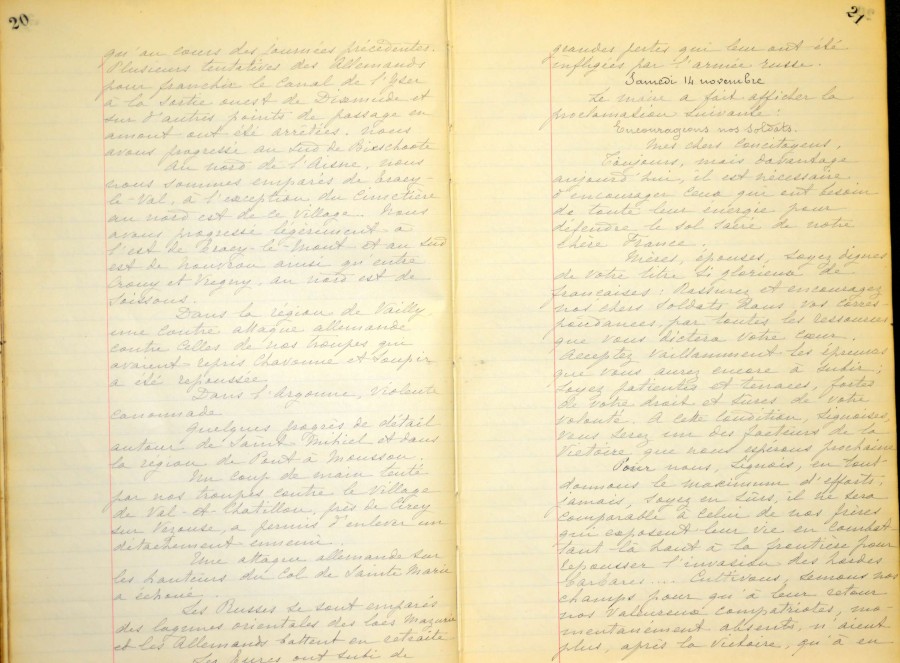 20
qu'au cours des journées précédentes.
Plusieurs tentatives des Allemands
pour franchir le Canal de l'Yser
à la sortie ouest de Dixmude et
sur d'autres points de passage en
amont ont été arrêtées. Nous
avons progressé au sud de Bixschoote
Au nord de l'Aisne, nous
nous sommes emparés de Tracy-
le-Val, à l'exception du Cimetière
au nord est de ce village. Nous
avons progressé légèrement à
l'est de Tracy-le-Mont et au sud
est de Nouvron ainsi qu'entre
Crouy et Vregny, au nord est de
Soissons.
Dans la région de Vailly
une contre attaque allemande
contre celles de nos troupes qui
avaient repris Chavonne et Soupir
a été repoussée
Dans l'Argonne, violente
canonnade
Quelques progrès de détail
autour de Saint Mihiel et dans
la région de Pont à Mousson.
Un coup de main tenté
par nos troupes contre le village
de Val-et-Chatillon, près de Cirey
sur Vezouse, a permis d'enlever un
détachement ennemi.
Une attaque allemande sur
les hauteurs du Col de Sainte Marie
a échoué.
Les Russes se sont emparés
des lagunes orientales des lacs Mazurie
et les Allemands battent en retraite
Les Turcs ont subi de
21
grandes pertes qui leur ont été
infligées par l'armée russe.
Samedi 14 novembre
Le maire a fait afficher la
proclamation suivante :
Encourageons nos soldats.
Mes chers Concitoyens,
Toujours, mais davantage
aujourd'hui, il est nécessaire
d'encourager ceux qui ont besoin
de toute leur énergie pour
défendre le sol sacré de notre
Chère France.
Mères, épouses, soyez dignes
de votre titre si glorieux de
françaises : Rassurez et encouragez
nos chers Soldats dans vos corres-
pondances par toutes les ressources
que vous dictera votre Cœur.
Acceptez vaillamment les épreuves
que vous aurez encore à subir ;
soyez patientes et tenaces, fortes
de votre droit et sûres de votre
volonté. A cette condition, Signoises,
vous serez un des facteurs de la
Victoire que nous espérons prochaine
Pour nous, Signois, en tout
donnons le maximum d'efforts ;
jamais, soyez en sûrs, il ne sera
comparable à celui de nos frères
qui exposent leur vie en combat-
tant là haut à la frontière pour
repousser l'invasion des hordes
barbares .... Cultivons, semons nos
champs pour qu'à leur retour
nos valeureux compatriotes, mo-
mentanément absents, n'aient
plus, après la Victoire, qu'à en